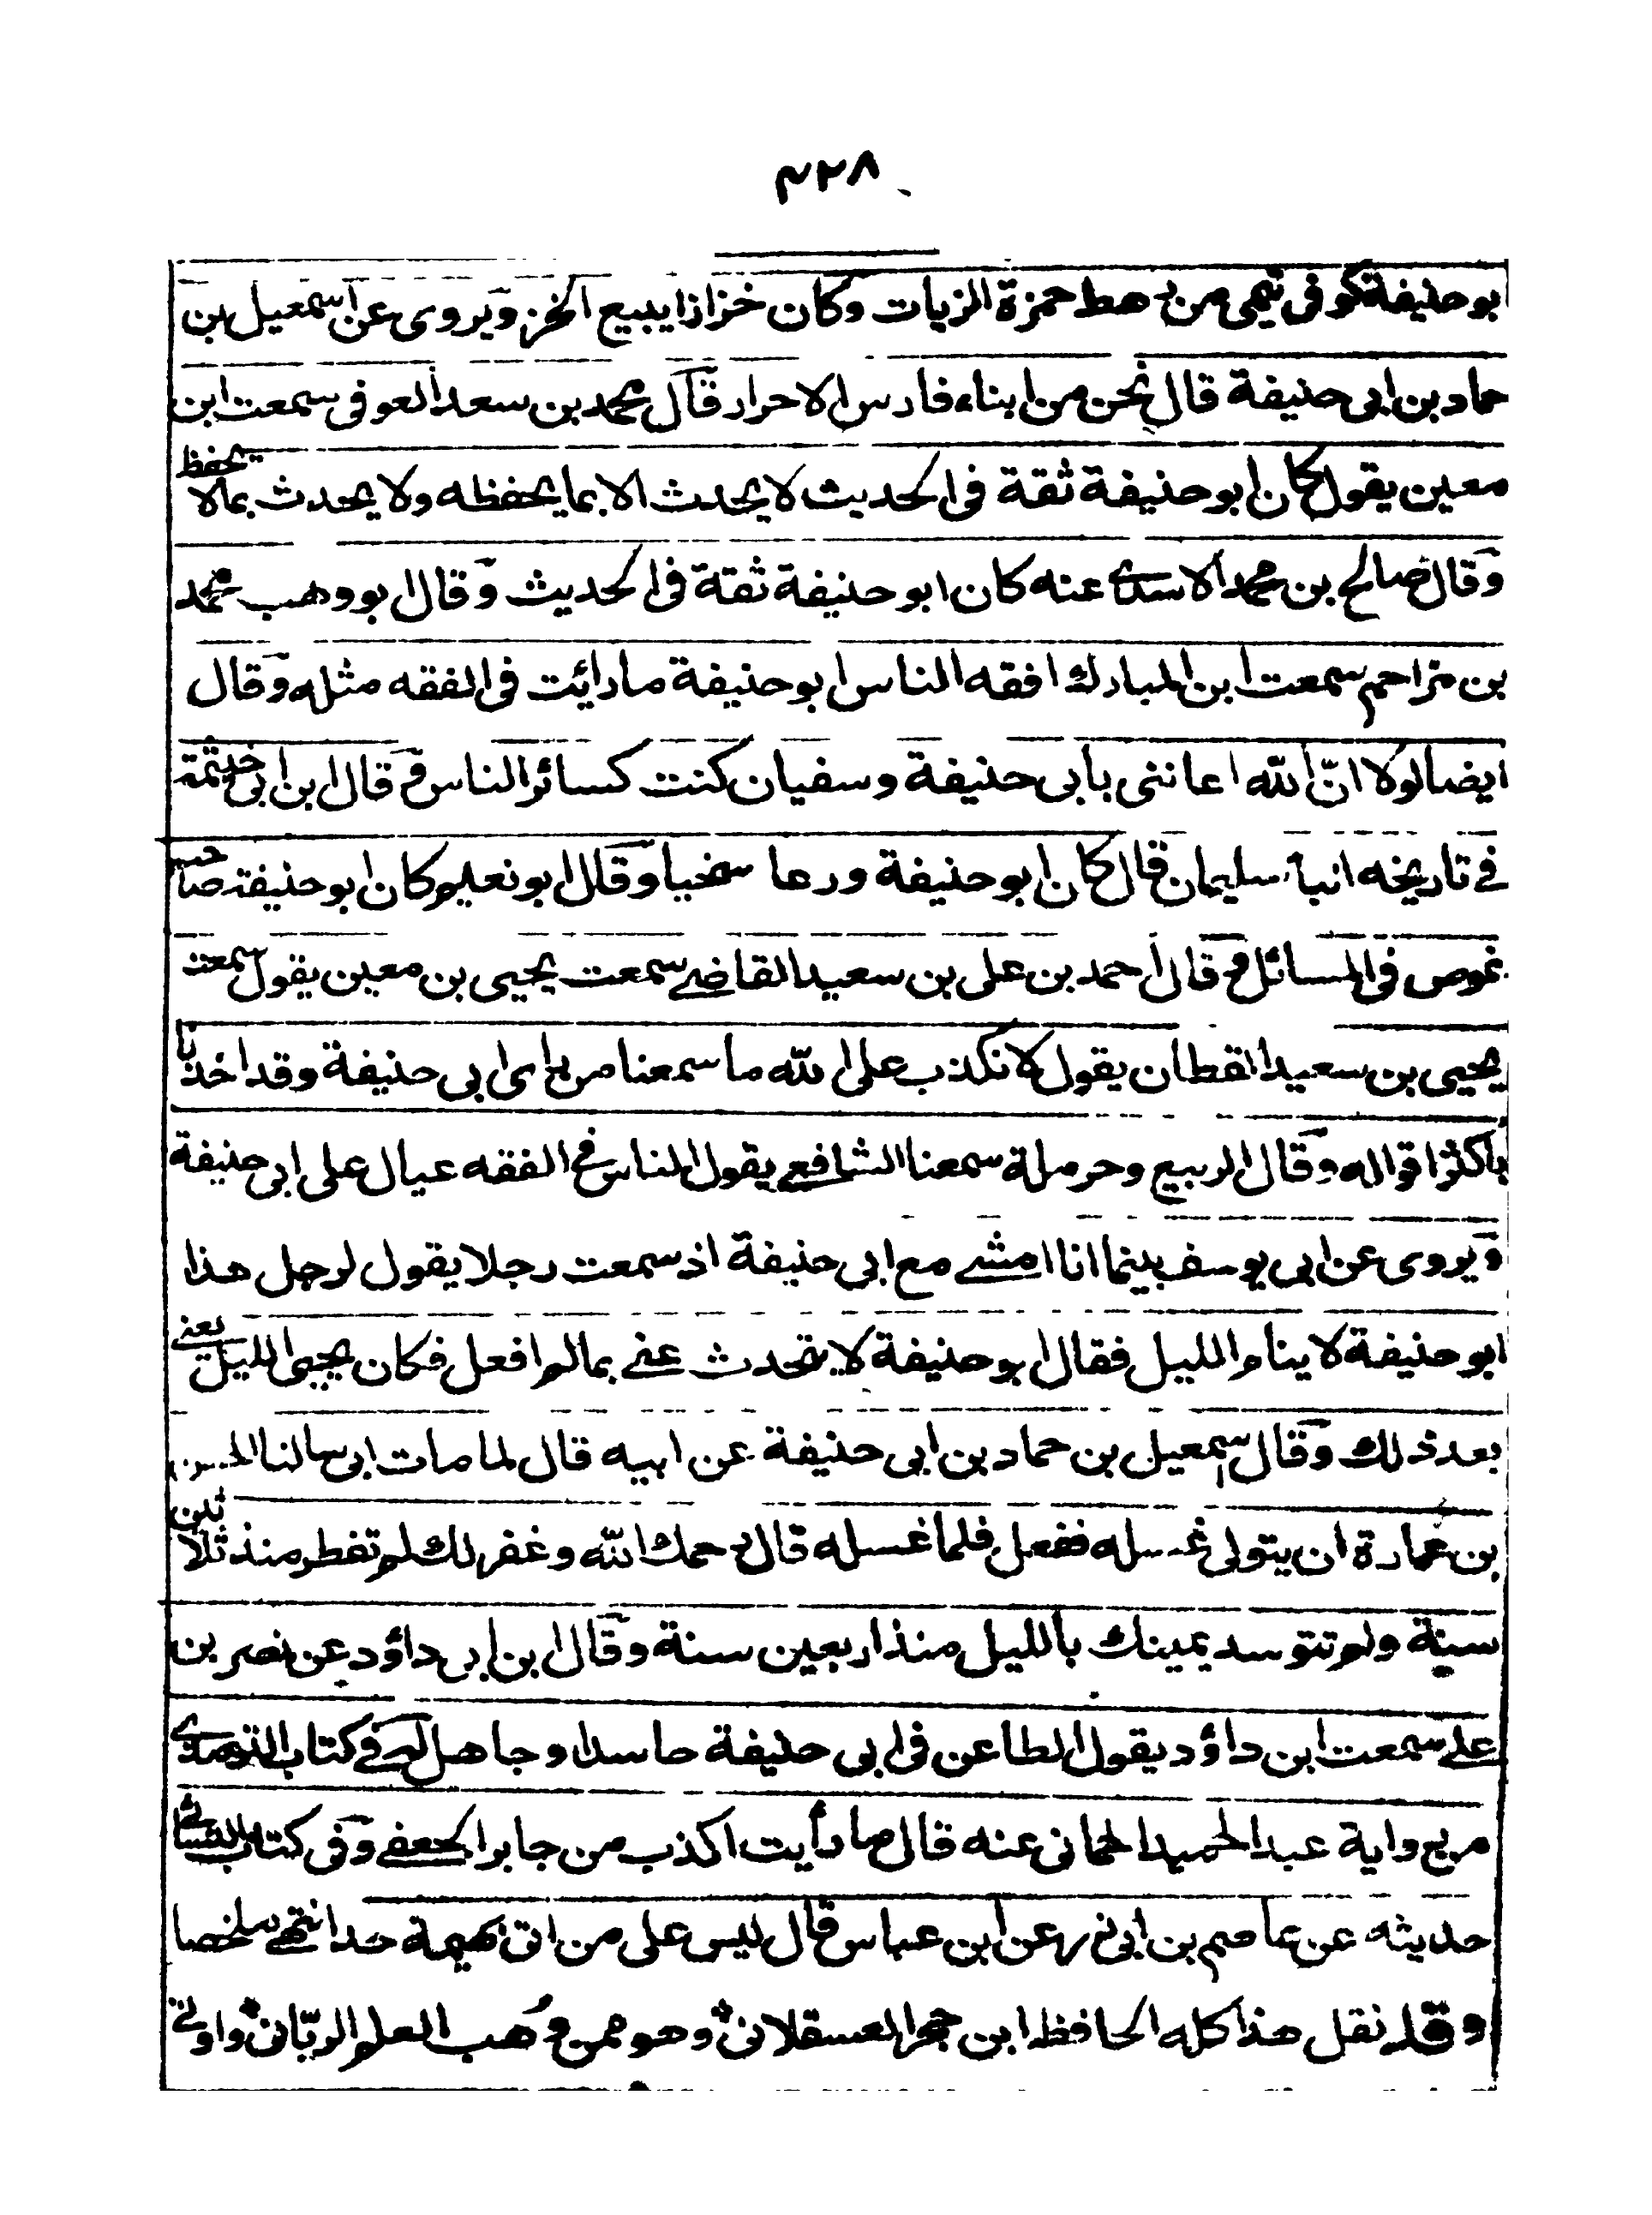 ٤٢٨
بو حنيفة كوفى تيمى من رهط حمزة الزيات وكان خزازا يبيع الخز ويروى عن اسمعيل بن
حماد بن ابى حنيفة قال نحن من ابناء فارس الاحرار قال محمد بن سعد العوفى سمعت ابن
معين يقول كان ابو حنيفة ثقة فى الحديث لا يحدث الا بما يحفظه ولا يحدث بما لا يحفظ
وقال صالح بن محمد الاسدى عنه كان ابو حنيفة ثقة فى الحديث وقال ابو وهب محمد
بن مزاحم سمعت ابن المبارك افقه الناس ابو حنيفة ما رائت فى الفقه مثله وقال
ايضا لولا انّ الله اعاننى بابى حنيفة وسفيان كنت كسائر الناس وقال ابن ابى خيثمة
فى تاريخه انبأ سليمان قال كان ابو حنيفة ورعا سخيا وقال ابو نعيم كان ابو حنيفة صاحب
غوص فى المسائل وقال احمد بن على بن سعيد القاضى سمعت يحيى بن معين يقول سمعت
يحيى بن سعيد القطان يقول لا نكذب على الله ما سمعنا من راى ابى حنيفة وقد اخذنا
باكثر اقواله وقال الربيع وحرملة سمعنا الشافعى يقول الناس فى الفقه عيال على ابى حنيفة
ويروى عن ابى يوسف بينما انا امشى مع ابى حنيفة اذ سمعت رجلا يقول لرجل هذا
ابو حنيفة لا ينام الليل فقال ابو حنيفة لا يتحدث عنى بما لم افعل فكان يحيى الليل يعنى
بعد ذلك وقال اسمعيل بن حماد بن ابى حنيفة عن ابيه قال لما مات ابى سالنا الحسن
بن عمارة ان يتولى غسله ففعل فلما غسله قال رحمك الله وغفر لك لم تفطر منذ ثلاثين
سنة ولم تتوسد يمينك بالليل منذ اربعين سنة وقال ابن ابى داؤد عن نصر بن
على سمعت ابن داؤد يقول الطاعن فى ابى حنيفة حاسد او جاهل له فى كتاب الترمذى
من رواية عبد الحميد الحمانى عنه قال ما رأيت اكذب من جابر الجعفى وفى كتاب النسائى
حديثه عن عاصم بن ابى ذر عن ابن عباس قال ليس على من اتى بهيمة حد انتهى ملخصا
وقد نقل هذا كله الحافظ ابن حجر العسقلانى وهو ممن وهب العلم الربّانى واوتى